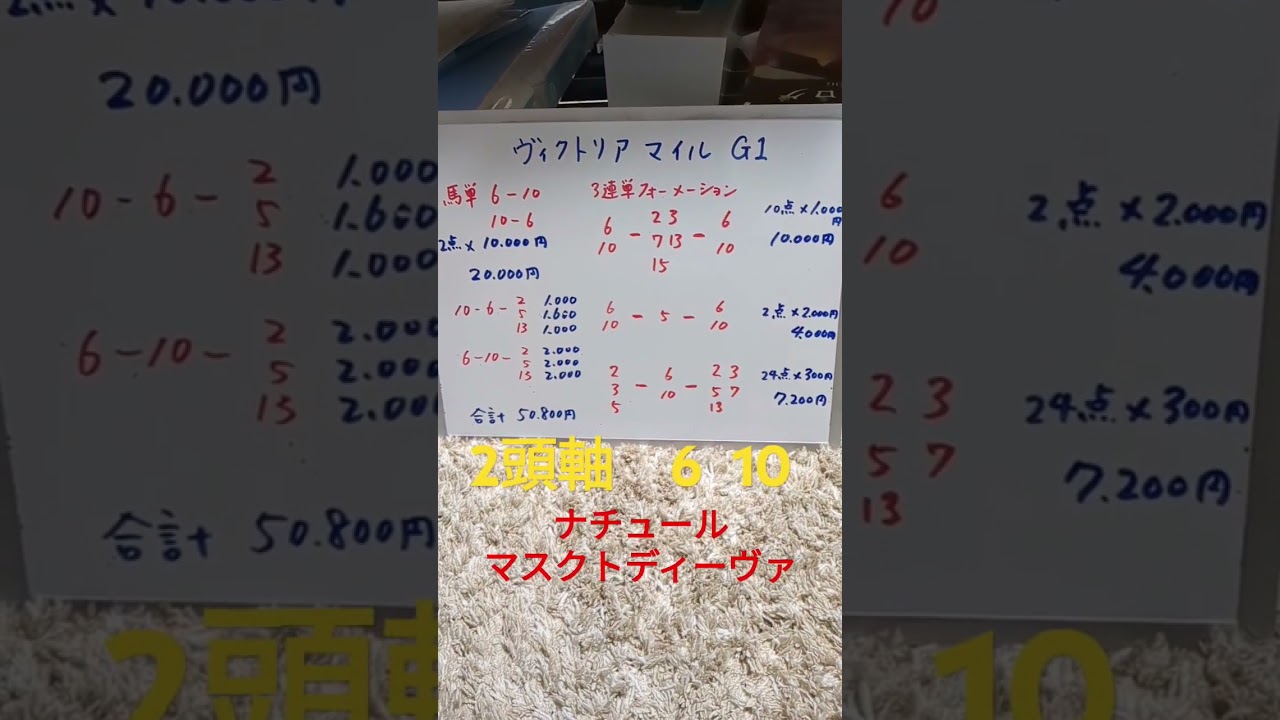 ヴィクトリア マイル G1
馬単 6-10
10-6
2点 × 10.000円
20.000円
10-6- 2 1.000
5 1.600
13 1.000
6-10- 2 2.000
5 2.000
13 2.000
合計 50.800円
3連単フォーメーション
6 2 3 6
10 - 7 13 - 10
15
10点 × 1.000円
10.000円
6 6
10 - 5 - 10
2点 × 2.000円
4.000円
2 6 2 3
3 - 10 - 5 7
5 13
24点 × 300円
7.200円
2頭軸 6 10
ナチュール
マスクトディーヴァ